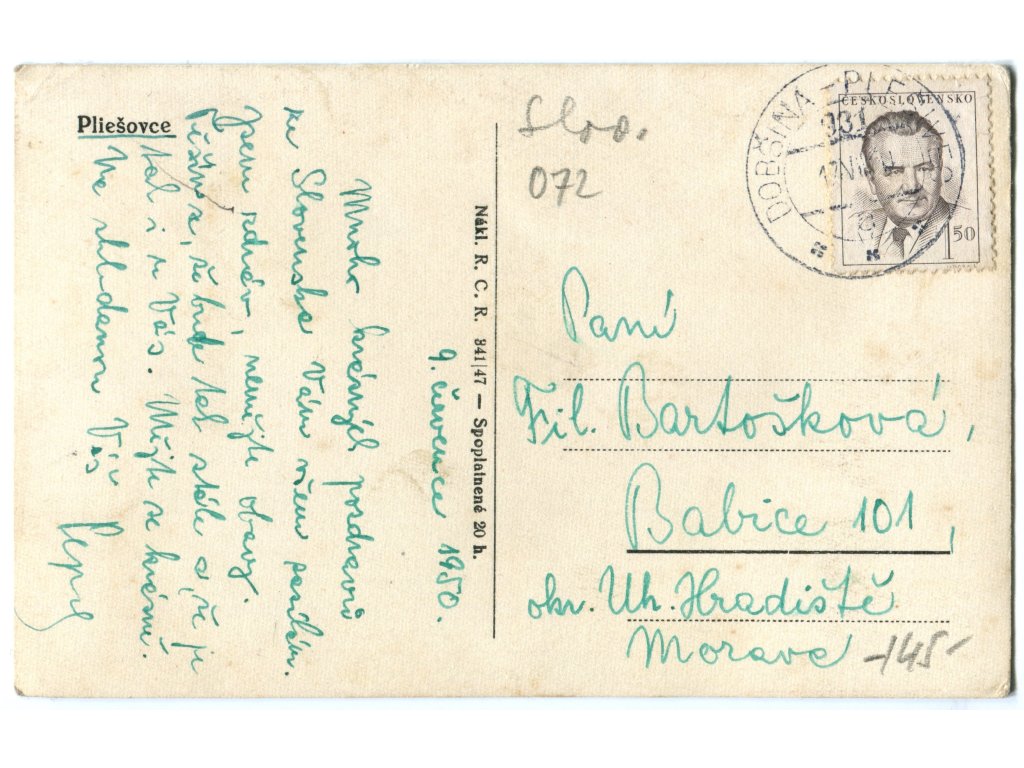 Pliešovce
9. července 1950.
Mnoho krásných pozdravů
ze Slovenska Vám všem posílám.
Jsem zdráv, nemějte obavy.
Věřím, že bude tak stále a že je
tak i u Vás. Mějte se krásně.
Na shledanou Váš
Pepa
Nákl. R. C. R. 841/47 — Spoplatnené 20 h.
Slov.
072
DOBŠINA – PLEŠIVEC
931
ČESKOSLOVENSKO
1 50
Paní
Fil. Bartošková,
Babice 101,
okr. Uh. Hradiště
Morava
-145-